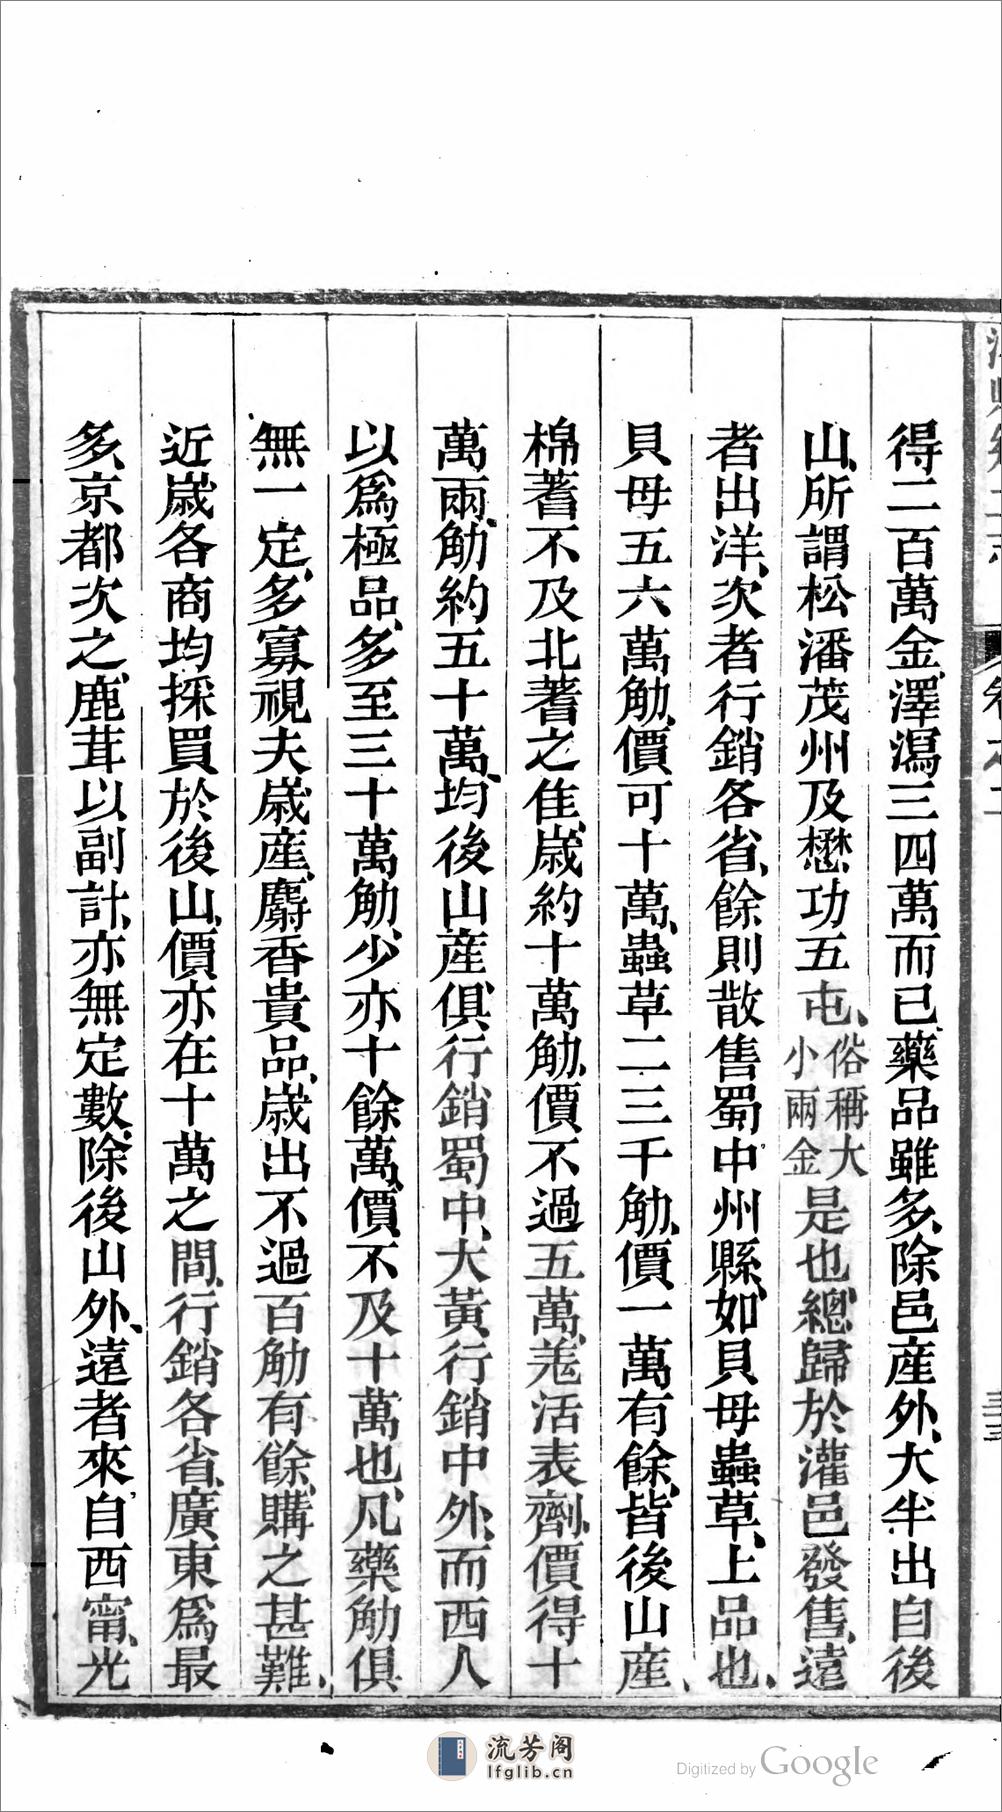 得二百萬金、澤瀉三四萬而已、藥品雖多、除邑産外、大半出自後
山、所謂松潘茂州及懋功五屯、俗稱大小兩金是也、總歸於灌邑發售、遠
者出洋、次者行銷各省、餘則散售蜀中州縣、如貝母蟲草、上品也、
貝母五六萬觔、價可十萬、蟲草二三千觔、價一萬有餘、皆後山産、
棉蓍不及北蓍之佳、歲約十萬觔、價不過五萬、羗活表劑、價得十
萬兩、觔約五十萬、均後山産、俱行銷蜀中、大黃行銷中外、而西人
以爲極品、多至三十萬觔、少亦十餘萬、價不及十萬也、凡藥觔俱
無一定、多寡視夫歲産、麝香貴品、歲出不過百觔有餘、購之甚難、
近歲各商均採買於後山、價亦在十萬之間、行銷各省、廣東爲最
多、京都次之、鹿茸以副計、亦無定數、除後山外、遠者來自西甯、光
卷之二
流芳阁
lfglib.cn
Digitized by Google